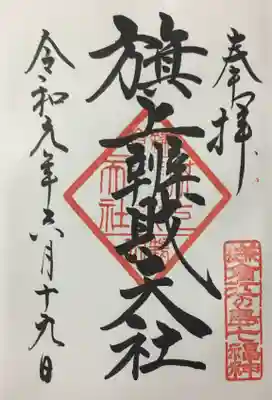 奉拝
鎌倉江の島七福神
旗上辨戝天社
令和元年六月十九日